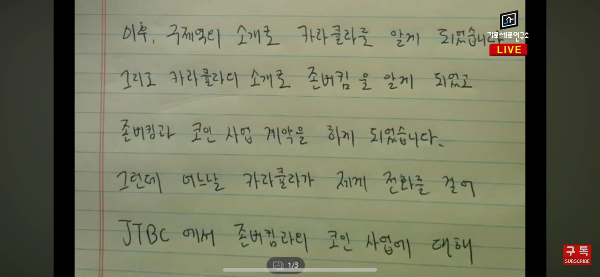 이후, 구제역의 소개로 카라큘라를 알게 되었습니다
그리고 카라큘라의 소개로 존버킴을 알게 되었고
존버킴과 코인 사업 계약을 하게 되었습니다.
그런데 어느날 카라큘라가 제게 전화를 걸어
JTBC 에서 존버킴과의 코인 사업에 대해
LIVE
1/3
구독
SUBSCRIBE